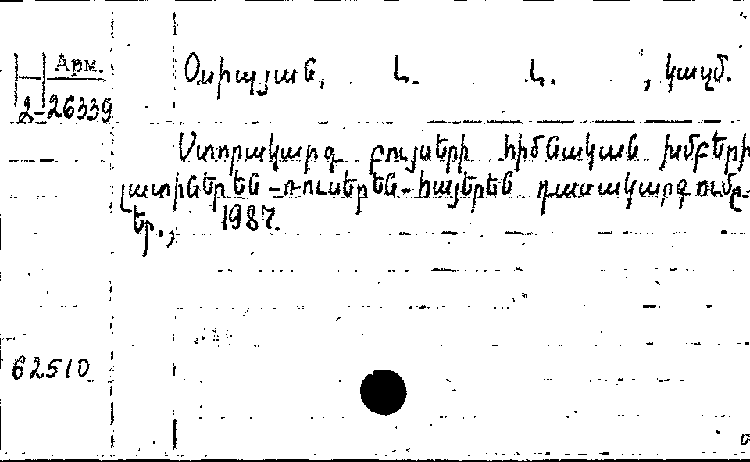 Арм.
Օսիպյան, Լ. Լ. , կազմ.
2-26339
Ստորակարգ բույսերի հիմնական խմբերի
լատիներեն-ռուսերեն-հայերեն դասակարգումը.-
Եր., 1987.
62510